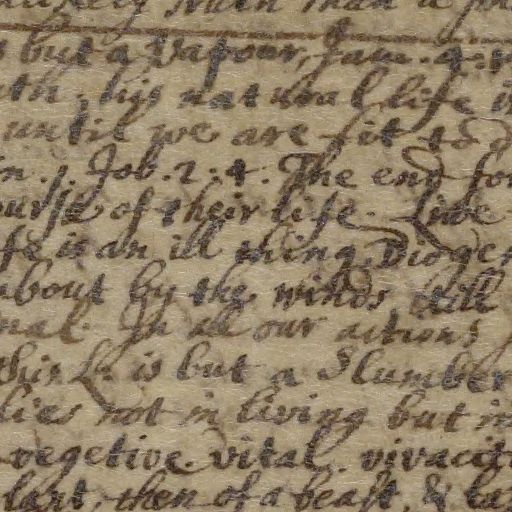 but a Vapour, Jam. 4.
his natural life
until we are fit to
Job. 2. 4. The end
of their life. Live
is an ill thing, Dioge
about by the winds still
In all our actions
this L. is but a Slumber
lies not in living but in
vegetive. vital. vivacit
then of a beast, &